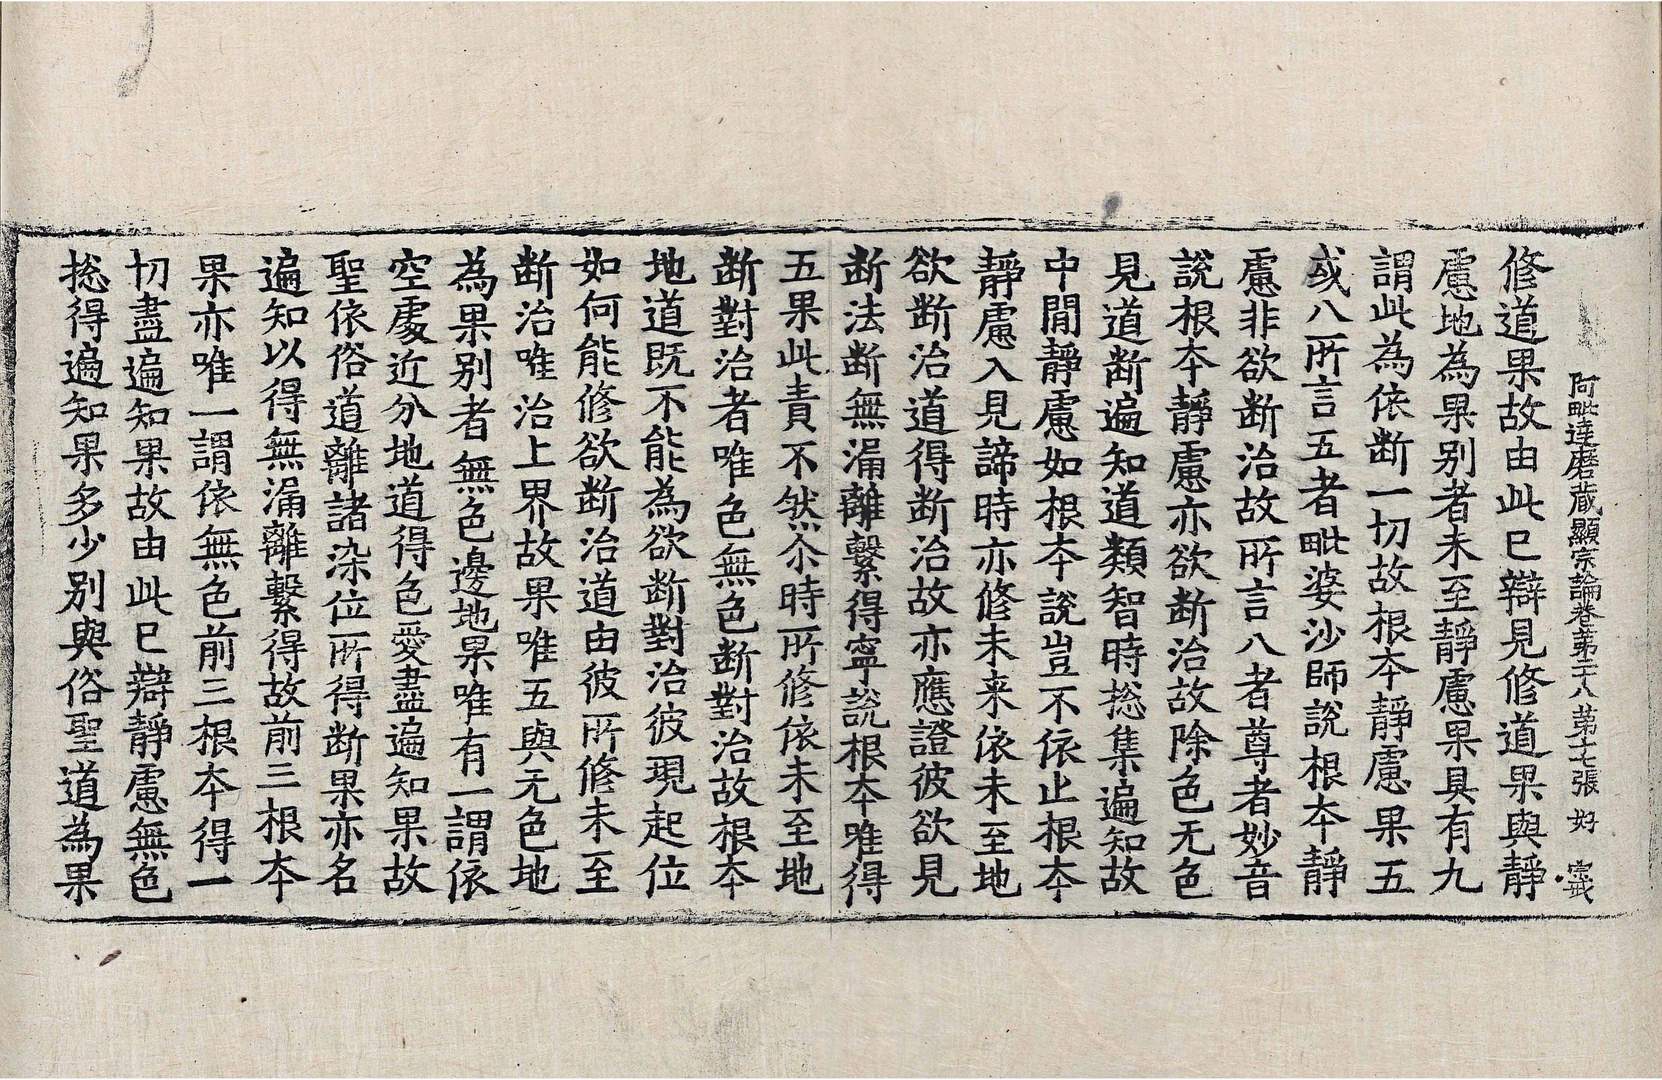 阿毗達磨藏顯宗論卷第二十八 第十七張 好
修道果故由此已辯見修道果與靜
慮地為果別者未至靜慮果具有九
謂此為依断一切故根本靜慮果五
或八所言五者毗婆沙師說根本靜
慮非欲断治故所言八者尊者妙音
說根本靜慮亦欲断治故除色无色
見道断遍知道類智時捴集遍知故
中閒靜慮如根本說豈不依止根本
靜慮入見諦時亦修未来依未至地
欲断治道得断治故亦應證彼欲見
断法断無漏離繫得寧説根本唯得
五果此責不然尒時所修依未至地
断對治者唯色無色断對治故根本
地道既不能為欲断對治彼現起位
如何能修欲断治道由彼所修未至
断治唯治上界故果唯五與无色地
為果别者無色邊地果唯有一謂依
空處近分地道得色愛盡遍知果故
聖依俗道離諸染位所得断果亦名
遍知以得無漏離繫得故前三根本
果亦唯一謂依無色前三根本得一
切盡遍知果故由此已辯靜慮無色
捴得遍知果多少別與俗聖道為果